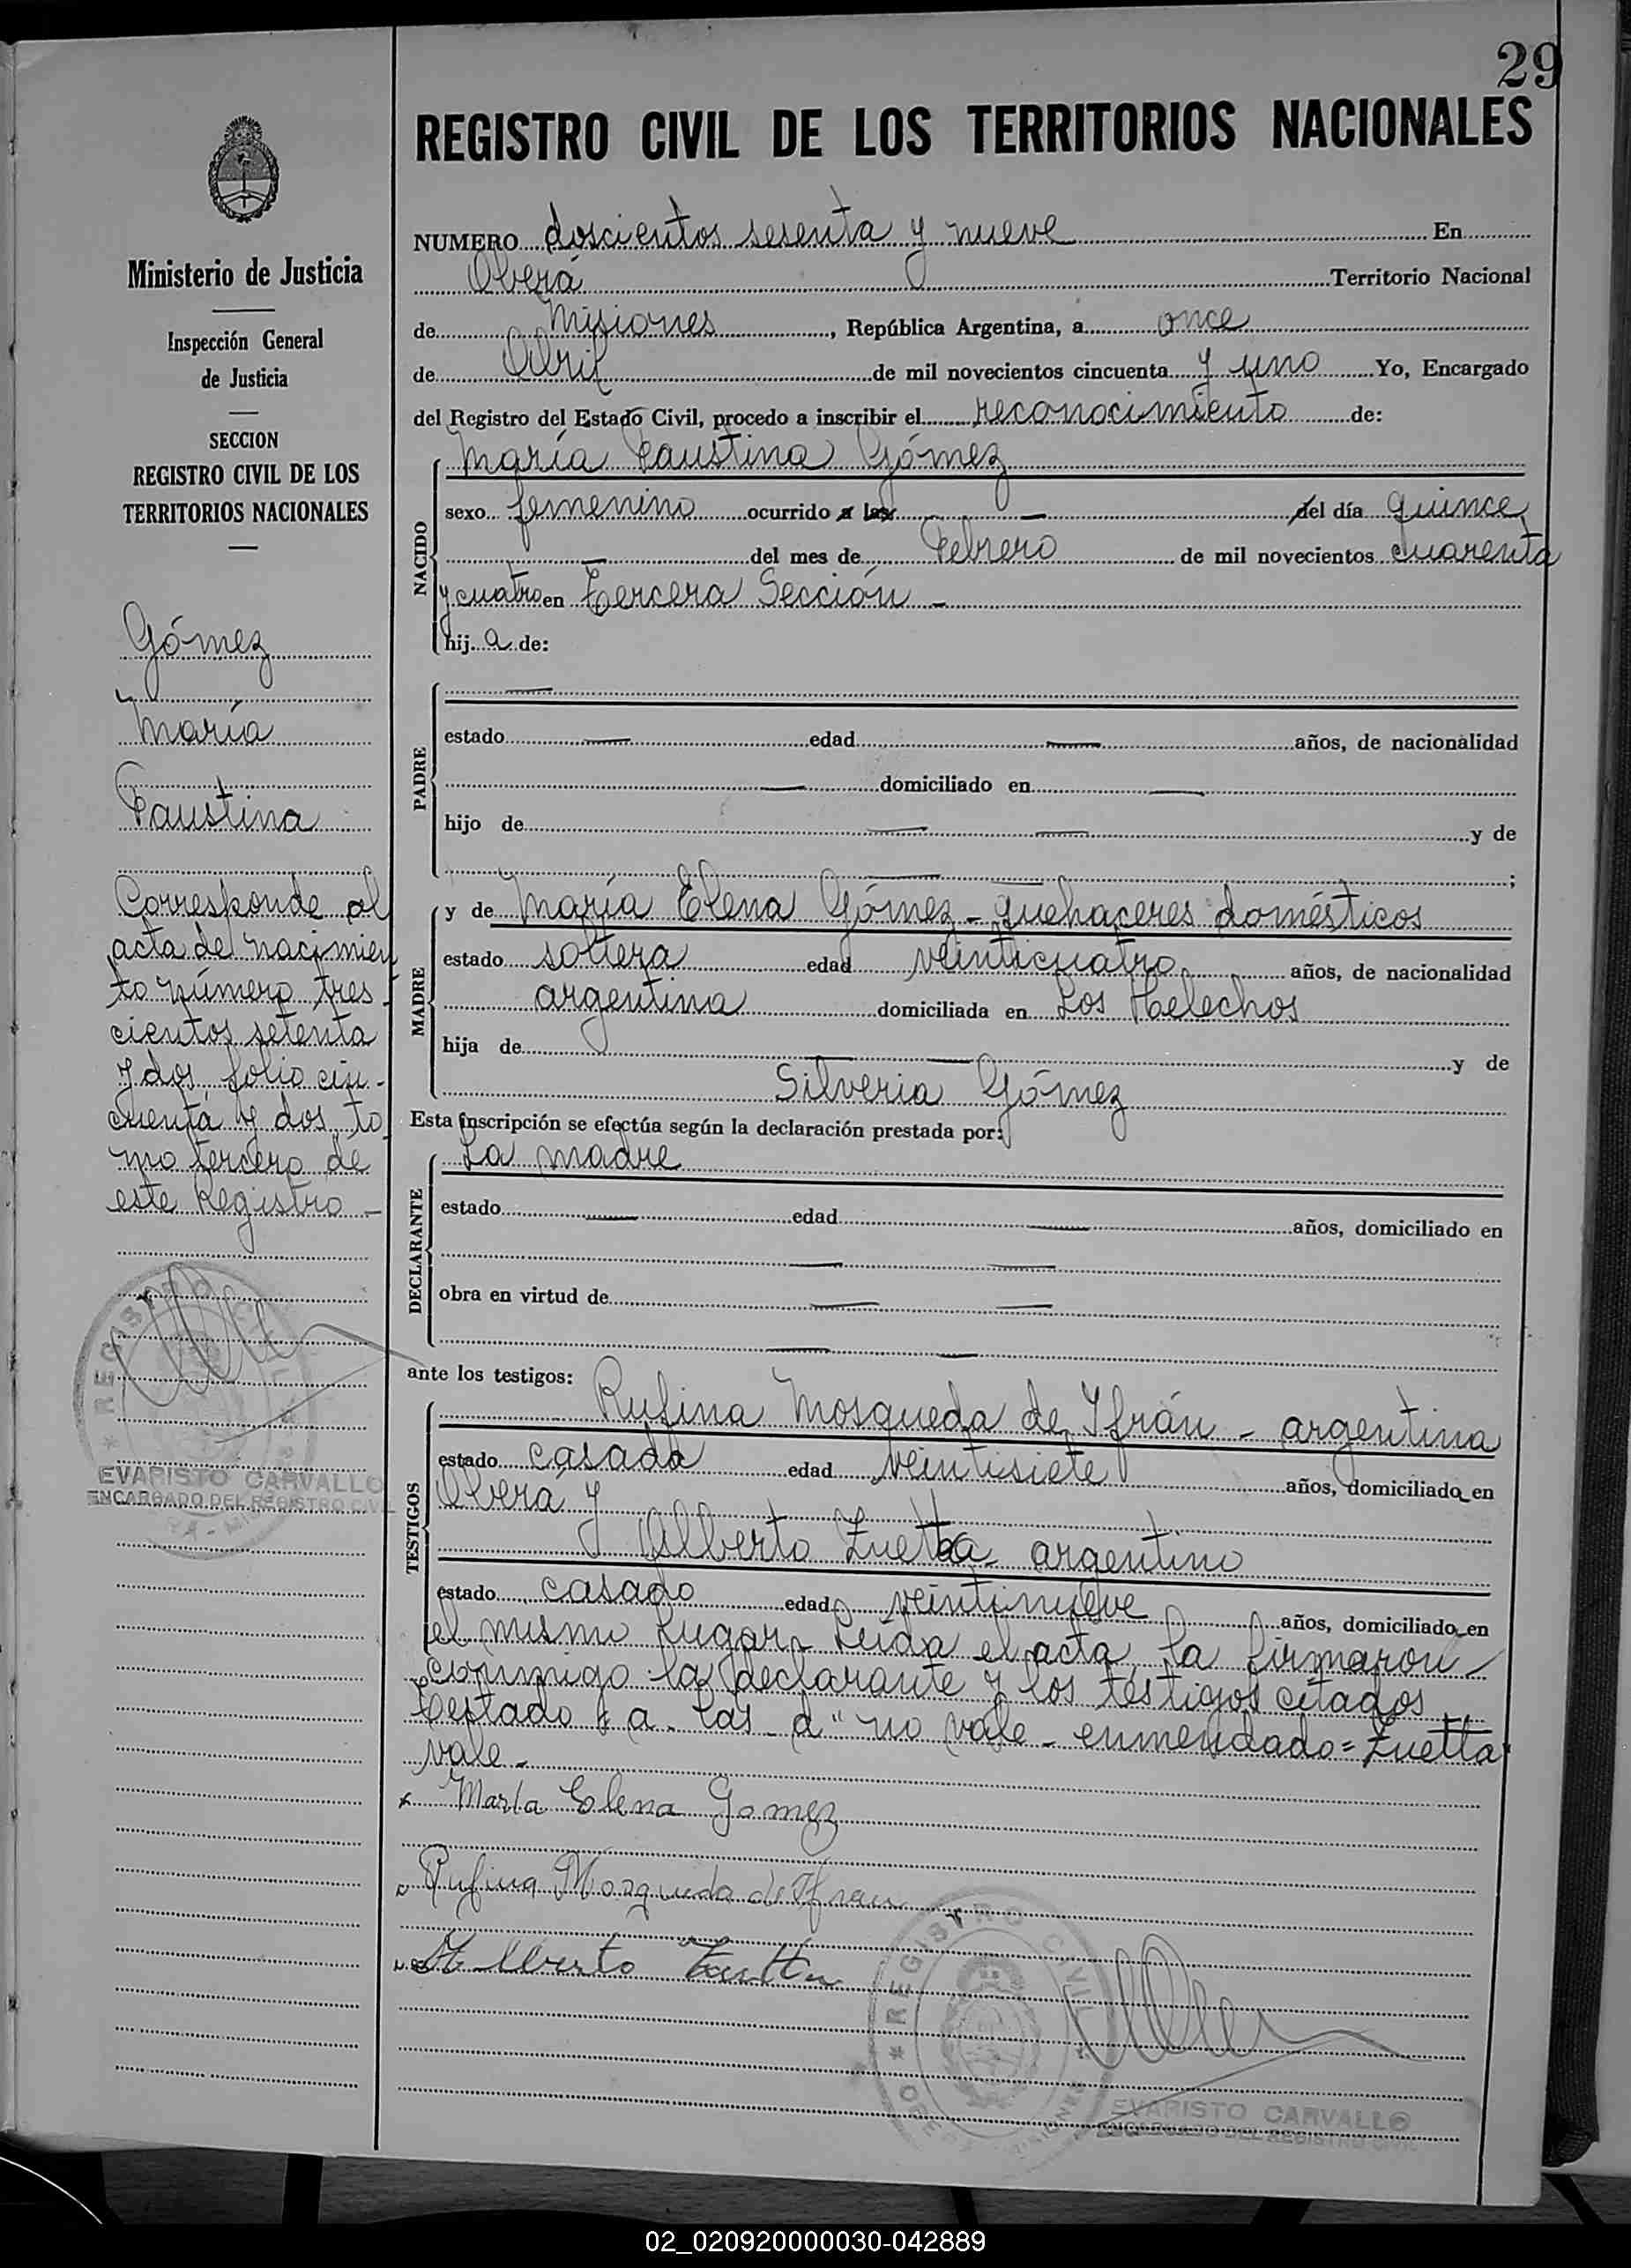 29
REGISTRO CIVIL DE LOS TERRITORIOS NACIONALES
Ministerio de Justicia
Inspección General
de Justicia
SECCION
REGISTRO CIVIL DE LOS
TERRITORIOS NACIONALES
Gómez
María
Faustina
Corresponde al
acta de nacimien
to número tres
cientos setenta
y dos folio cin-
cuenta y dos to
mo tercero de
este Registro -
REGISTRO CIVIL
EVARISTO CARVALLO
ENCARGADO DEL REGISTRO CIVIL
NUMERO doscientos sesenta y nueve En
Oberá Territorio Nacional
de Misiones, República Argentina, a once
de Abril de mil novecientos cincuenta y uno Yo, Encargado
del Registro del Estado Civil, procedo a inscribir el reconocimiento de:
NACIDO
María Faustina Gómez
sexo femenino ocurrido a las — del día quince
— del mes de Febrero de mil novecientos cuarenta
y cuatro en Tercera Sección -
hija de:
PADRE
—
estado — edad — años, de nacionalidad
— domiciliado en —
hijo de — — y de
— ;
MADRE
y de María Elena Gómez - quehaceres domésticos
estado soltera edad veinticuatro años, de nacionalidad
argentina domiciliada en Los Helechos
hija de — y de
Silveria Gómez
Esta inscripción se efectúa según la declaración prestada por:
DECLARANTE
La madre
estado — edad — años, domiciliado en
— —
obra en virtud de — —
— —
ante los testigos:
TESTIGOS
Rufina Mosqueda de Ifrán - argentina
estado casada edad veintisiete años, domiciliado en
Oberá y
Alberto Zuetta - argentino
estado casado edad veintinueve años, domiciliado en
el mismo lugar - Leída el acta, la firmaron
conmigo la declarante y los testigos citados
testado : a - las - d" no vale - enmendado = Zuetta
vale -
x María Elena Gomez
Rufina Mosqueda de Ifran
Alberto Zuetta
REGISTRO CIVIL
OBERA MISIONES
EVARISTO CARVALLO
ENCARGADO DEL REGISTRO CIVIL
02_020920000030-042889